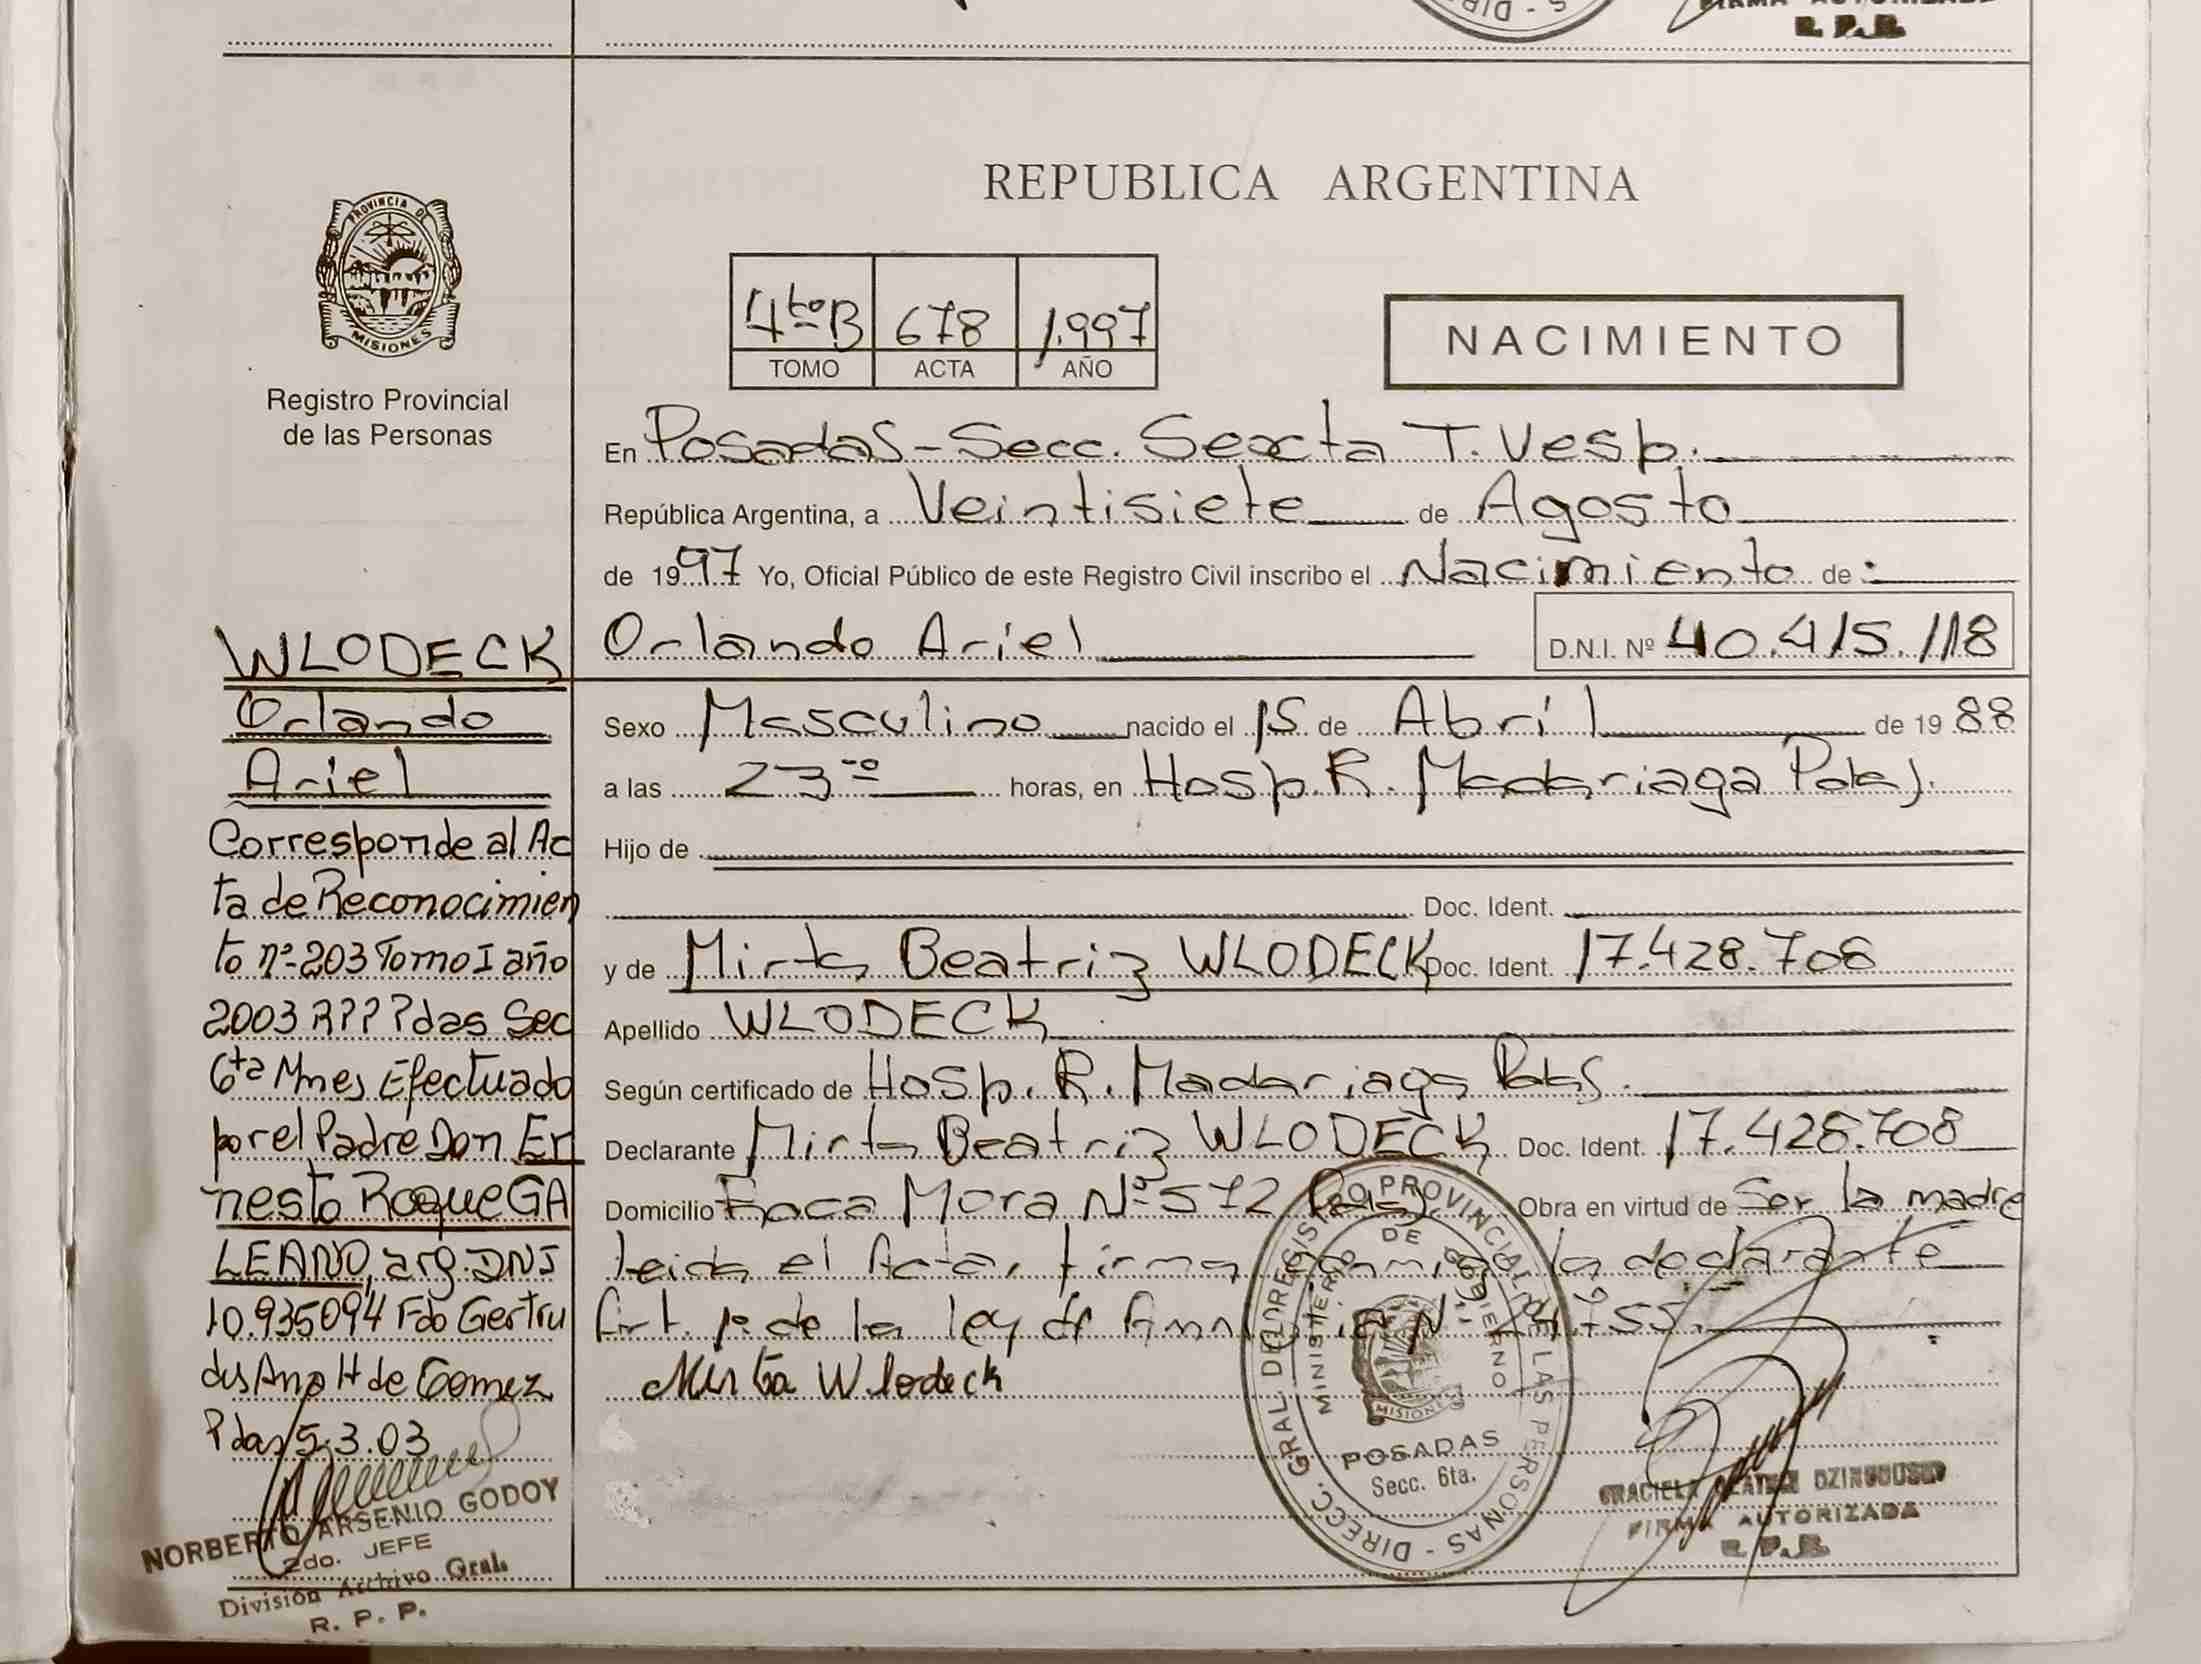 DIREC - S
FIRMA AUTORIZADA
R. P. P.
PROVINCIA DE
MISIONES
Registro Provincial
de las Personas
WLODECK
Orlando
Ariel
Corresponde al Ac
ta de Reconocimien
to nº 203 Tomo I año
2003 R??? das Sec
6ta Mnes Efectuado
por el Padre Don Er
nesto Roque GA
LEANO, arg. DNI
10.935094 Fdo Gertru
dis Ana H de Gomez
Pdas 5.3.03
NORBERTO ARSENIO GODOY
2do. JEFE
División Archivo Gral.
R. P. P.
REPUBLICA ARGENTINA
4to B 678 1.997
TOMO ACTA AÑO
NACIMIENTO
En Posadas - Secc. Sexta T. Vesp.
República Argentina, a Veintisiete de Agosto
de 1997 Yo, Oficial Público de este Registro Civil inscribo el Nacimiento de:
Orlando Ariel D.N.I. Nº 40.415.118
Sexo Masculino nacido el 15 de Abril de 1988
a las 23 horas, en Hosp. R. Madariaga Pdas.
Hijo de
Doc. Ident.
y de Mirta Beatriz WLODECK Doc. Ident. 17.428.708
Apellido WLODECK
Según certificado de Hosp. R. Madariaga Pdas.
Declarante Mirta Beatriz WLODECK Doc. Ident. 17.428.708
Domicilio Roca Mora Nº 572 Pdas. Obra en virtud de Ser la madre
leida el Acta, firma conmigo la declarante
Art. 1º de la ley de Amnistia Nº
Mirta Wlodeck
DIRECC. GRAL DEL REGISTRO PROVINCIAL DE LAS PERSONAS - DIREC
MINISTERIO DE GOBIERNO
MISIONES
POSADAS
Secc. 6ta.
GRACIELA BEATRIZ
FIRMA AUTORIZADA
R. P. P.